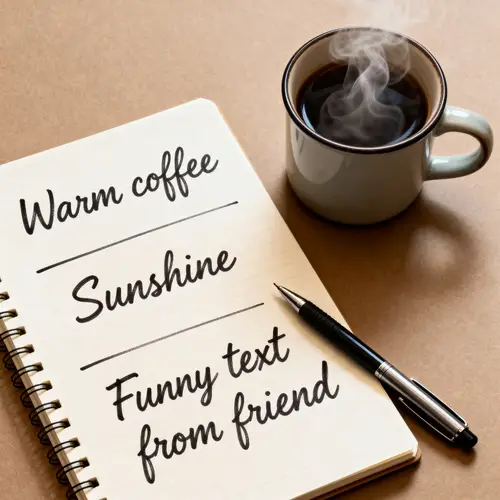 Warm coffee
Sunshine
Funny text
from friend